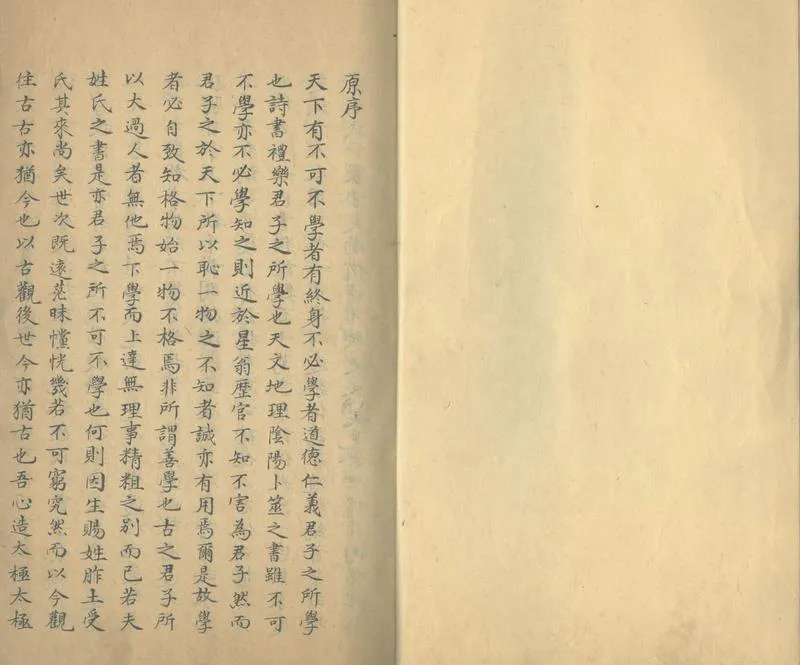 原序
天下有不可不學者有終身不必學者道德仁義君子之所學
也詩書禮樂君子之所學也天文地理陰陽卜筮之書雖不可
不學亦不必學知之則近於星翁歷官不知不害為君子然而
君子之於天下所以恥一物之不知者誠亦有用焉爾是故學
者必自致知格物始一物不格焉非所謂善學也古之君子所
以大過人者無他焉下學而上達無理事精粗之別而已若夫
姓氏之書是亦君子之所不可不學也何則因生賜姓胙土受
氏其來尚矣世次既遠茫昧戃恍幾若不可窮究然而以今觀
往古古亦猶今也以古觀後世今亦猶古也吾心造太極太極